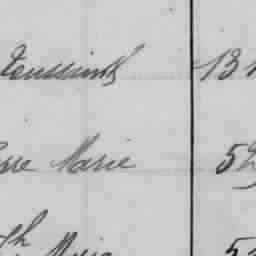 Toussaint 13
rre Marie 5
ph Marie 5